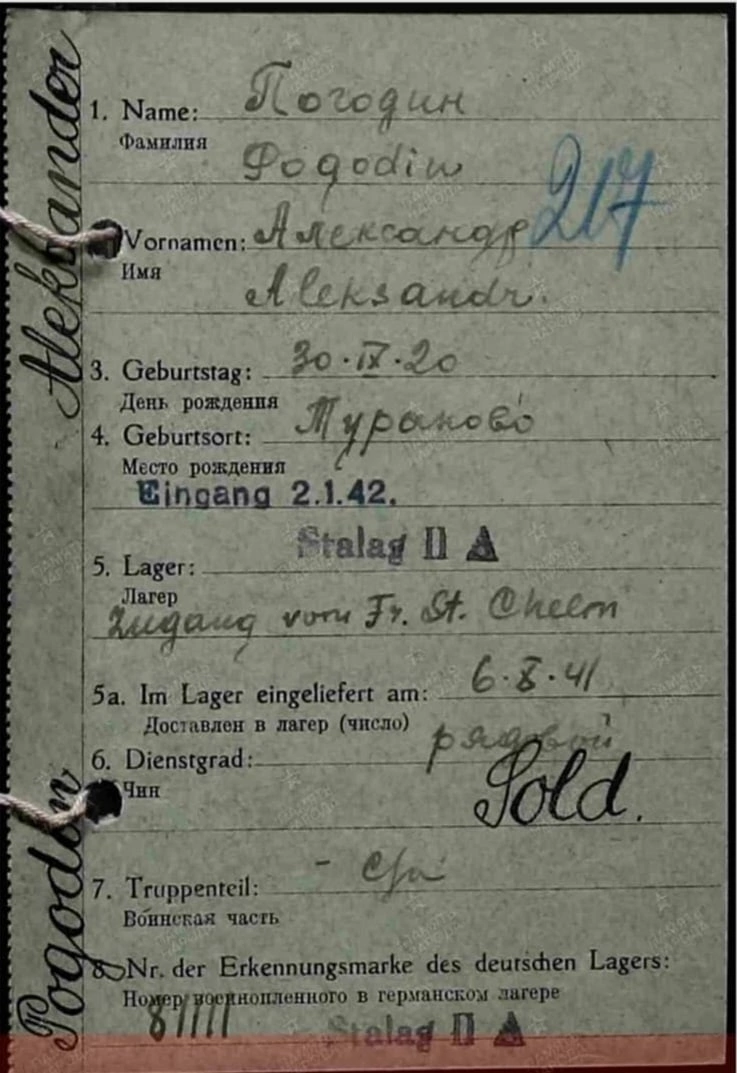 1. Name: Погодин
Фамилия
Pogodin
217
Vornamen: Александр
Имя
Aleksandr.
3. Geburtstag: 30·IX·20
День рождения
4. Geburtsort: Тураково
Место рождения
Eingang 2.1.42.
Stalag II A
5. Lager:
Лагер
Zugang vom Fr. St. Chelm
5a. Im Lager eingeliefert am: 6·X·41
Доставлен в лагер (число)
рядовой
6. Dienstgrad:
Чин
Sold.
7. Truppenteil: -
Воинская часть
8. Nr. der Erkennungsmarke des deutschen Lagers:
Номер военнопленного в германском лагере
81111
Stalag II A
Pogodin Aleksander